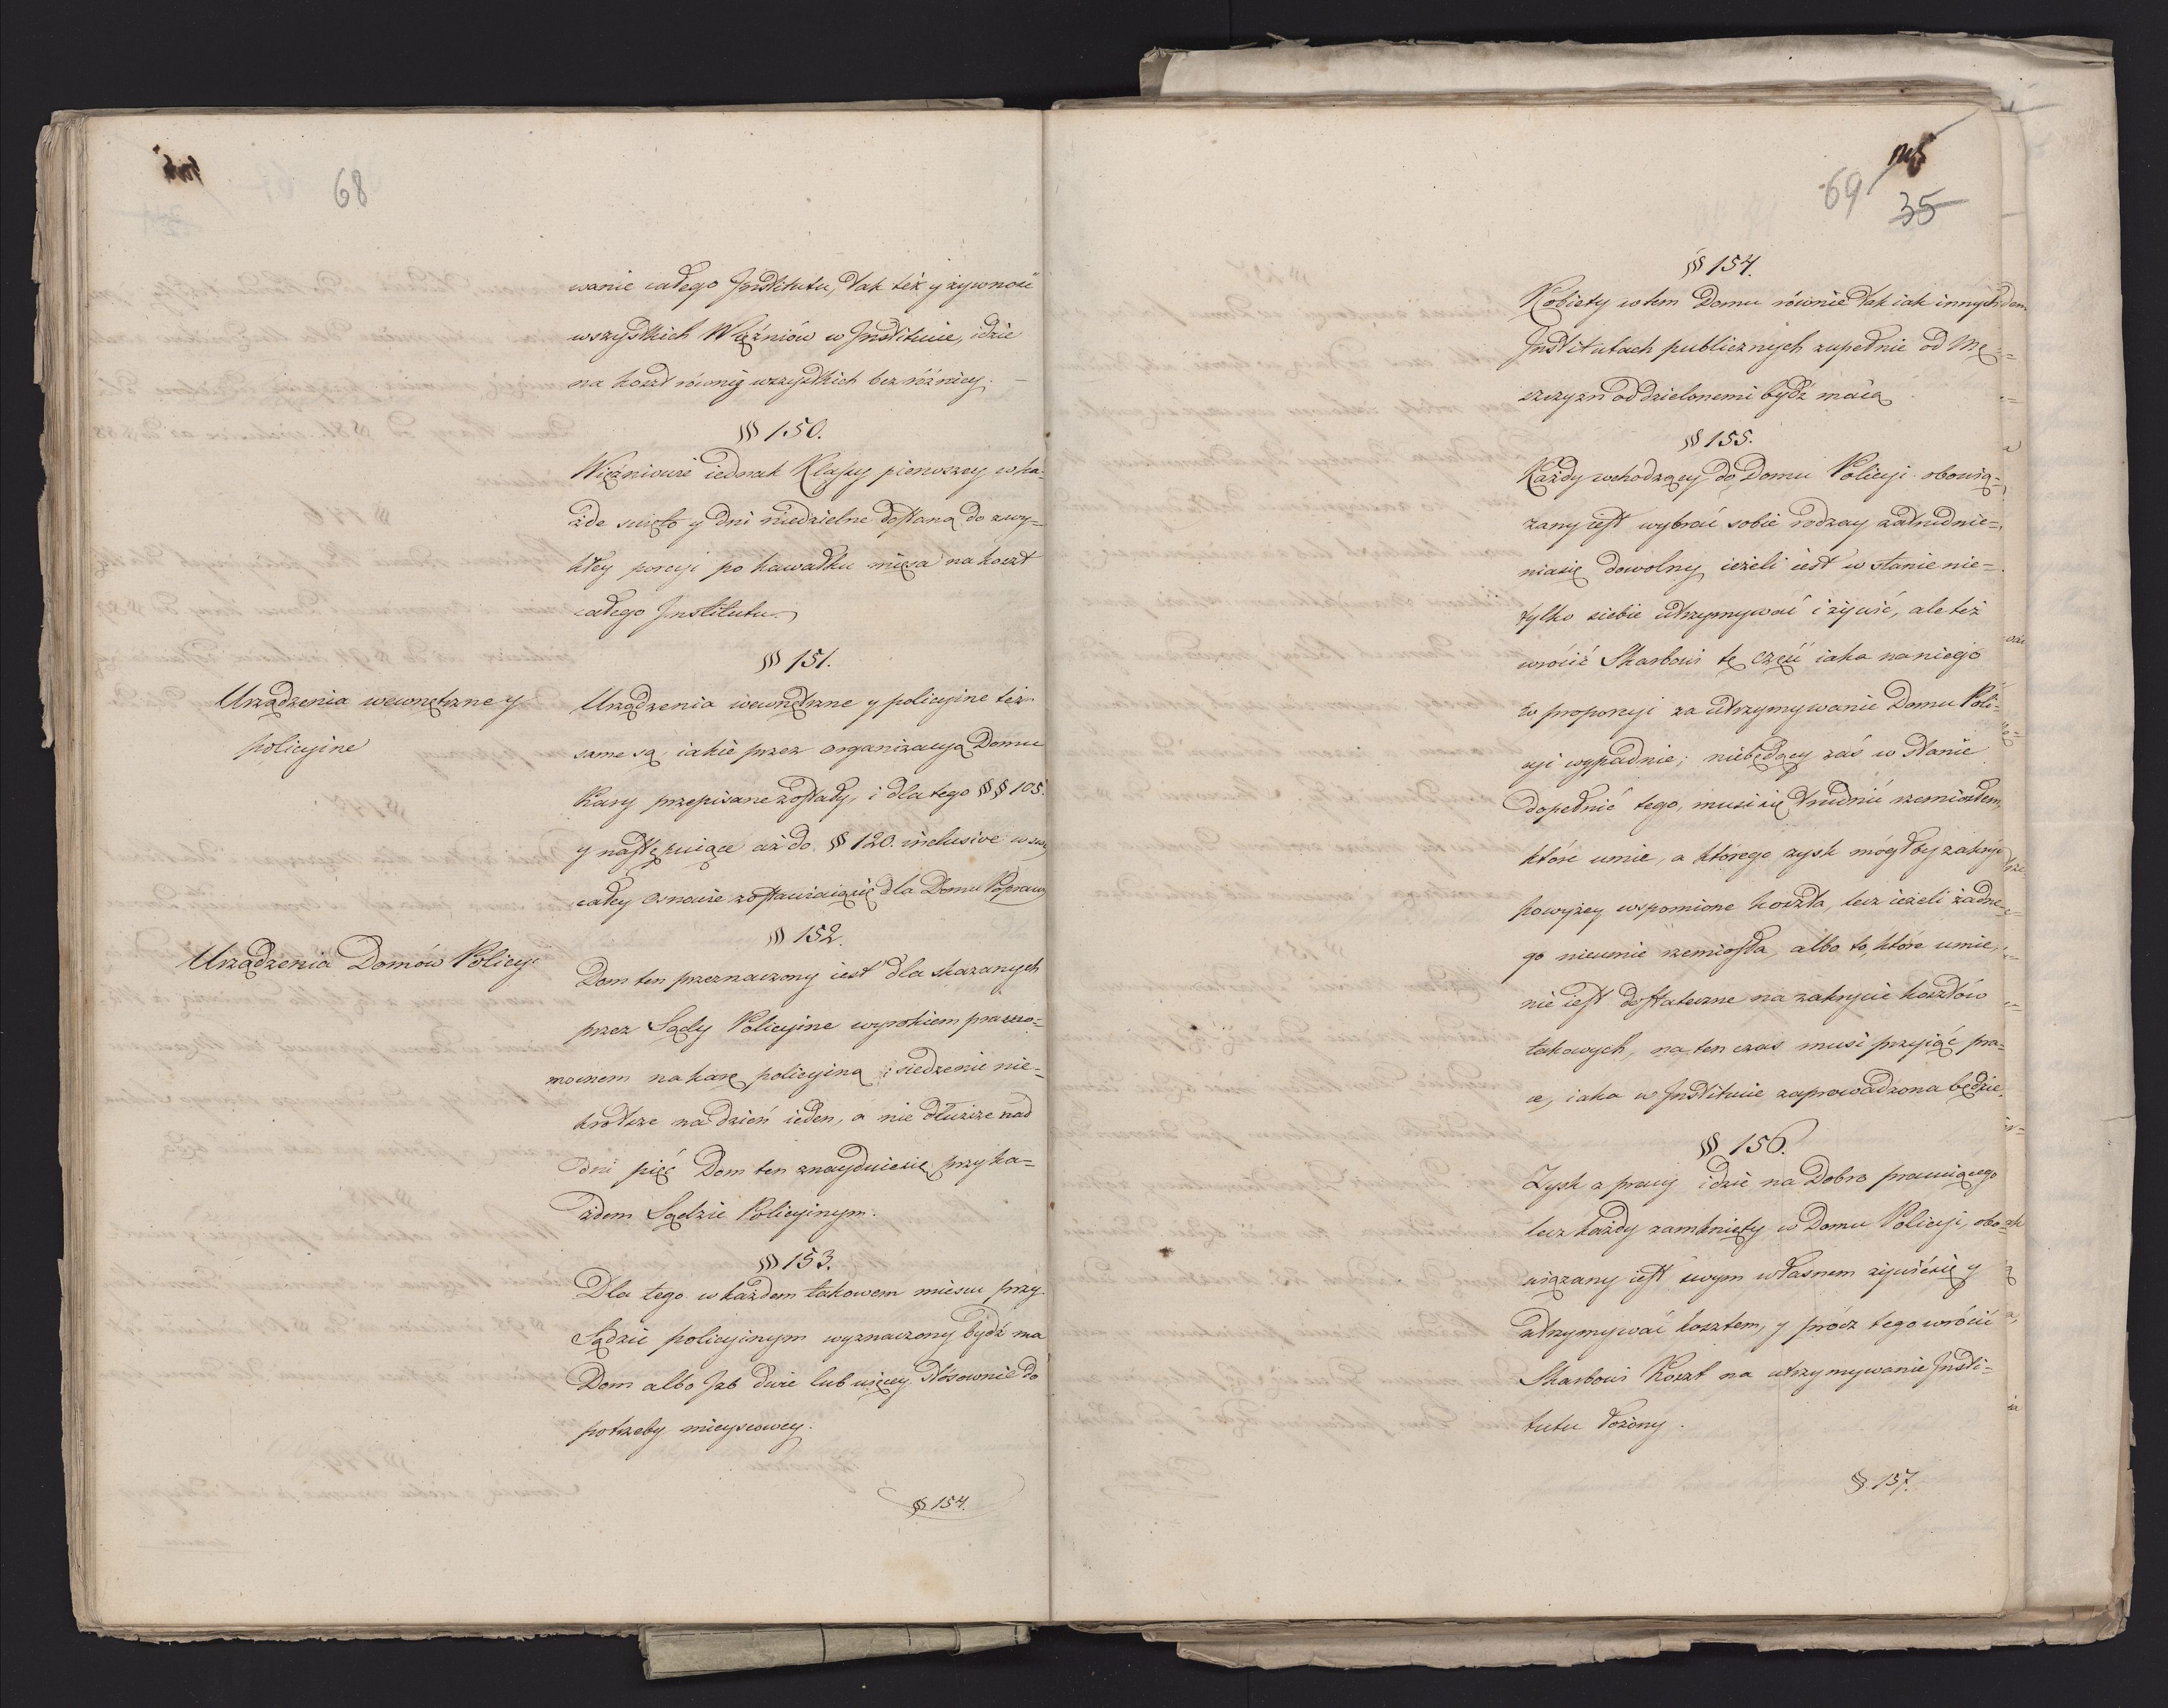 68
wanie całego Institutu, tak też y żywność
wszystkich Więźniów w Institucie, idzie
na koszt równię wszystkich bez różnicy.
§ 150.
Więźniowie iednak Klassy pierwszey w ka-
żde święto y dni niedzielne dostaną do zwy=
kłey porcyi po kawałku mięsa na koszt
całego Institutu.
§ 151.
Urządzenia wewnętrzne y
policyine
Urządzenia wewnętrzne y policyine też
same są iakie przez organizacyą Domu
Kary przepisane zostały, i dla tego §§ 105.
y następuiące aż do § 120. inclusive w swey
całey osnowie zostawiaią się dla Domu Poprawy
§ 152.
Urządzenia Domów Policyi
Dom ten przeznaczony iest dla skazanych
przez Sądy Policyine wyrokiem prawo=
mocnem na karę policyiną i siedzenie nie=
krótsze nad dzień ieden, a nie dłuższe nad
dni pięć Dom ten znayduie się przy ka=
żdem Sądzie Policyinym.
§ 153.
Dla tego w każdem takowem miescu przy
Sądzie policyinym wyznaczony bydź ma
Dom albo Izb dwie lub więcey stosownie do
potrzeby mieyscowey.
§ 154.
69
35
§ 154.
Kobiety w tem Domu równie tak iak innych
Institutach publicznych zupełnie od Mę=
szczyzn oddzielonemi bydź maią
§ 155.
Każdy wchodzący do Domu Policyi obowią=
zany iest wybrać sobie rodzay zatrudnie=
nia się dowolny ieżeli iest w stanie nie=
tylko siebie utrzymywać i żywić, ale też
wrócić Skarbowi tę część iaka na niego
w proporcyi za utrzymywanie Domu Poli=
cyi wypadnie; niebędący zaś w stanie
dopełnić tego, musi się trudnić rzemiosłem,
które umie, a którego zysk mógłby zakryć
powyżey wspomione koszta, lecz ieżeli żadne=
go nieumie rzemiosła, albo to, które umie,
nie iest dostateczne na zakrycie kosztów
takowych, na ten czas musi przyiąć pra=
cę, iaka w Institucie zaprowadzona będzie.
§ 156.
Zysk z pracy idzie na Dobro pracuiącego
lecz każdy zamknięty w Domu Policyi, obo=
wiązany iest swym własnem żywić się y
utrzymywać kosztem, y prócz tego wrócić
Skarbowi Koszt na utrzymywanie Insti=
tutu łożony.
§. 157.